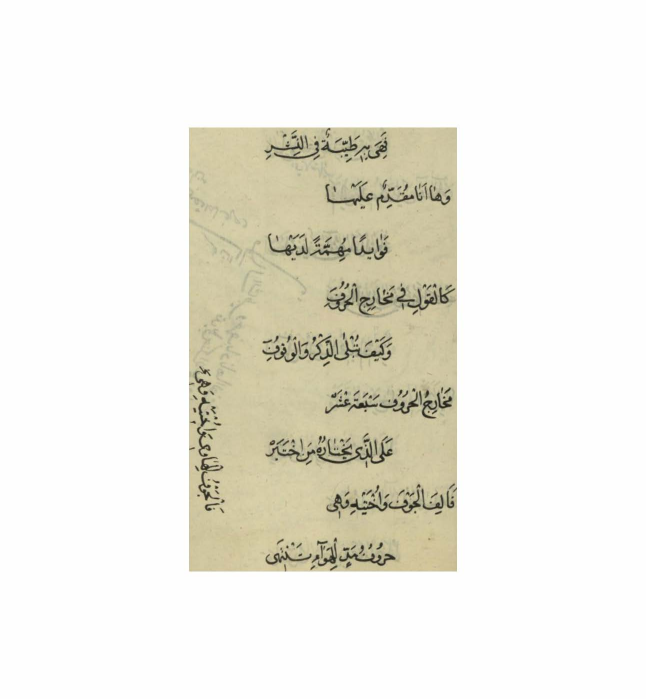 فَهِىَ بِهِ طَيِّبَةٌ فِى النَّشْرِ
وَهَا اَنَا مُقَدِّمٌ عَلَيْهَا
فَوَايِدًا مُهِمَّةً لَدَيْهَا
كَالْقَوْلِ فِى مَخَارِجِ الْحُرُوفِ
وَكَيْفَ يُتْلَى الذِّكْرُ وَالْوُقُوفِ
مَخَارِجُ الْحُرُوفِ سَبْعَةَ عَشَرْ
عَلَى الَّذِى يَخْتَارُهُ مَنِ اخْتَبَرْ
فَالِفُ الْجَوْفِ وَاُخْتَيْهِ وَهِى
حُرُوفُ مَدٍّ لِلْهَوَآءِ تَنْتَهِى
فَالْجَوْفُ لِلْهَاوِى وَاُخْتَيْهِ وَهِىَ